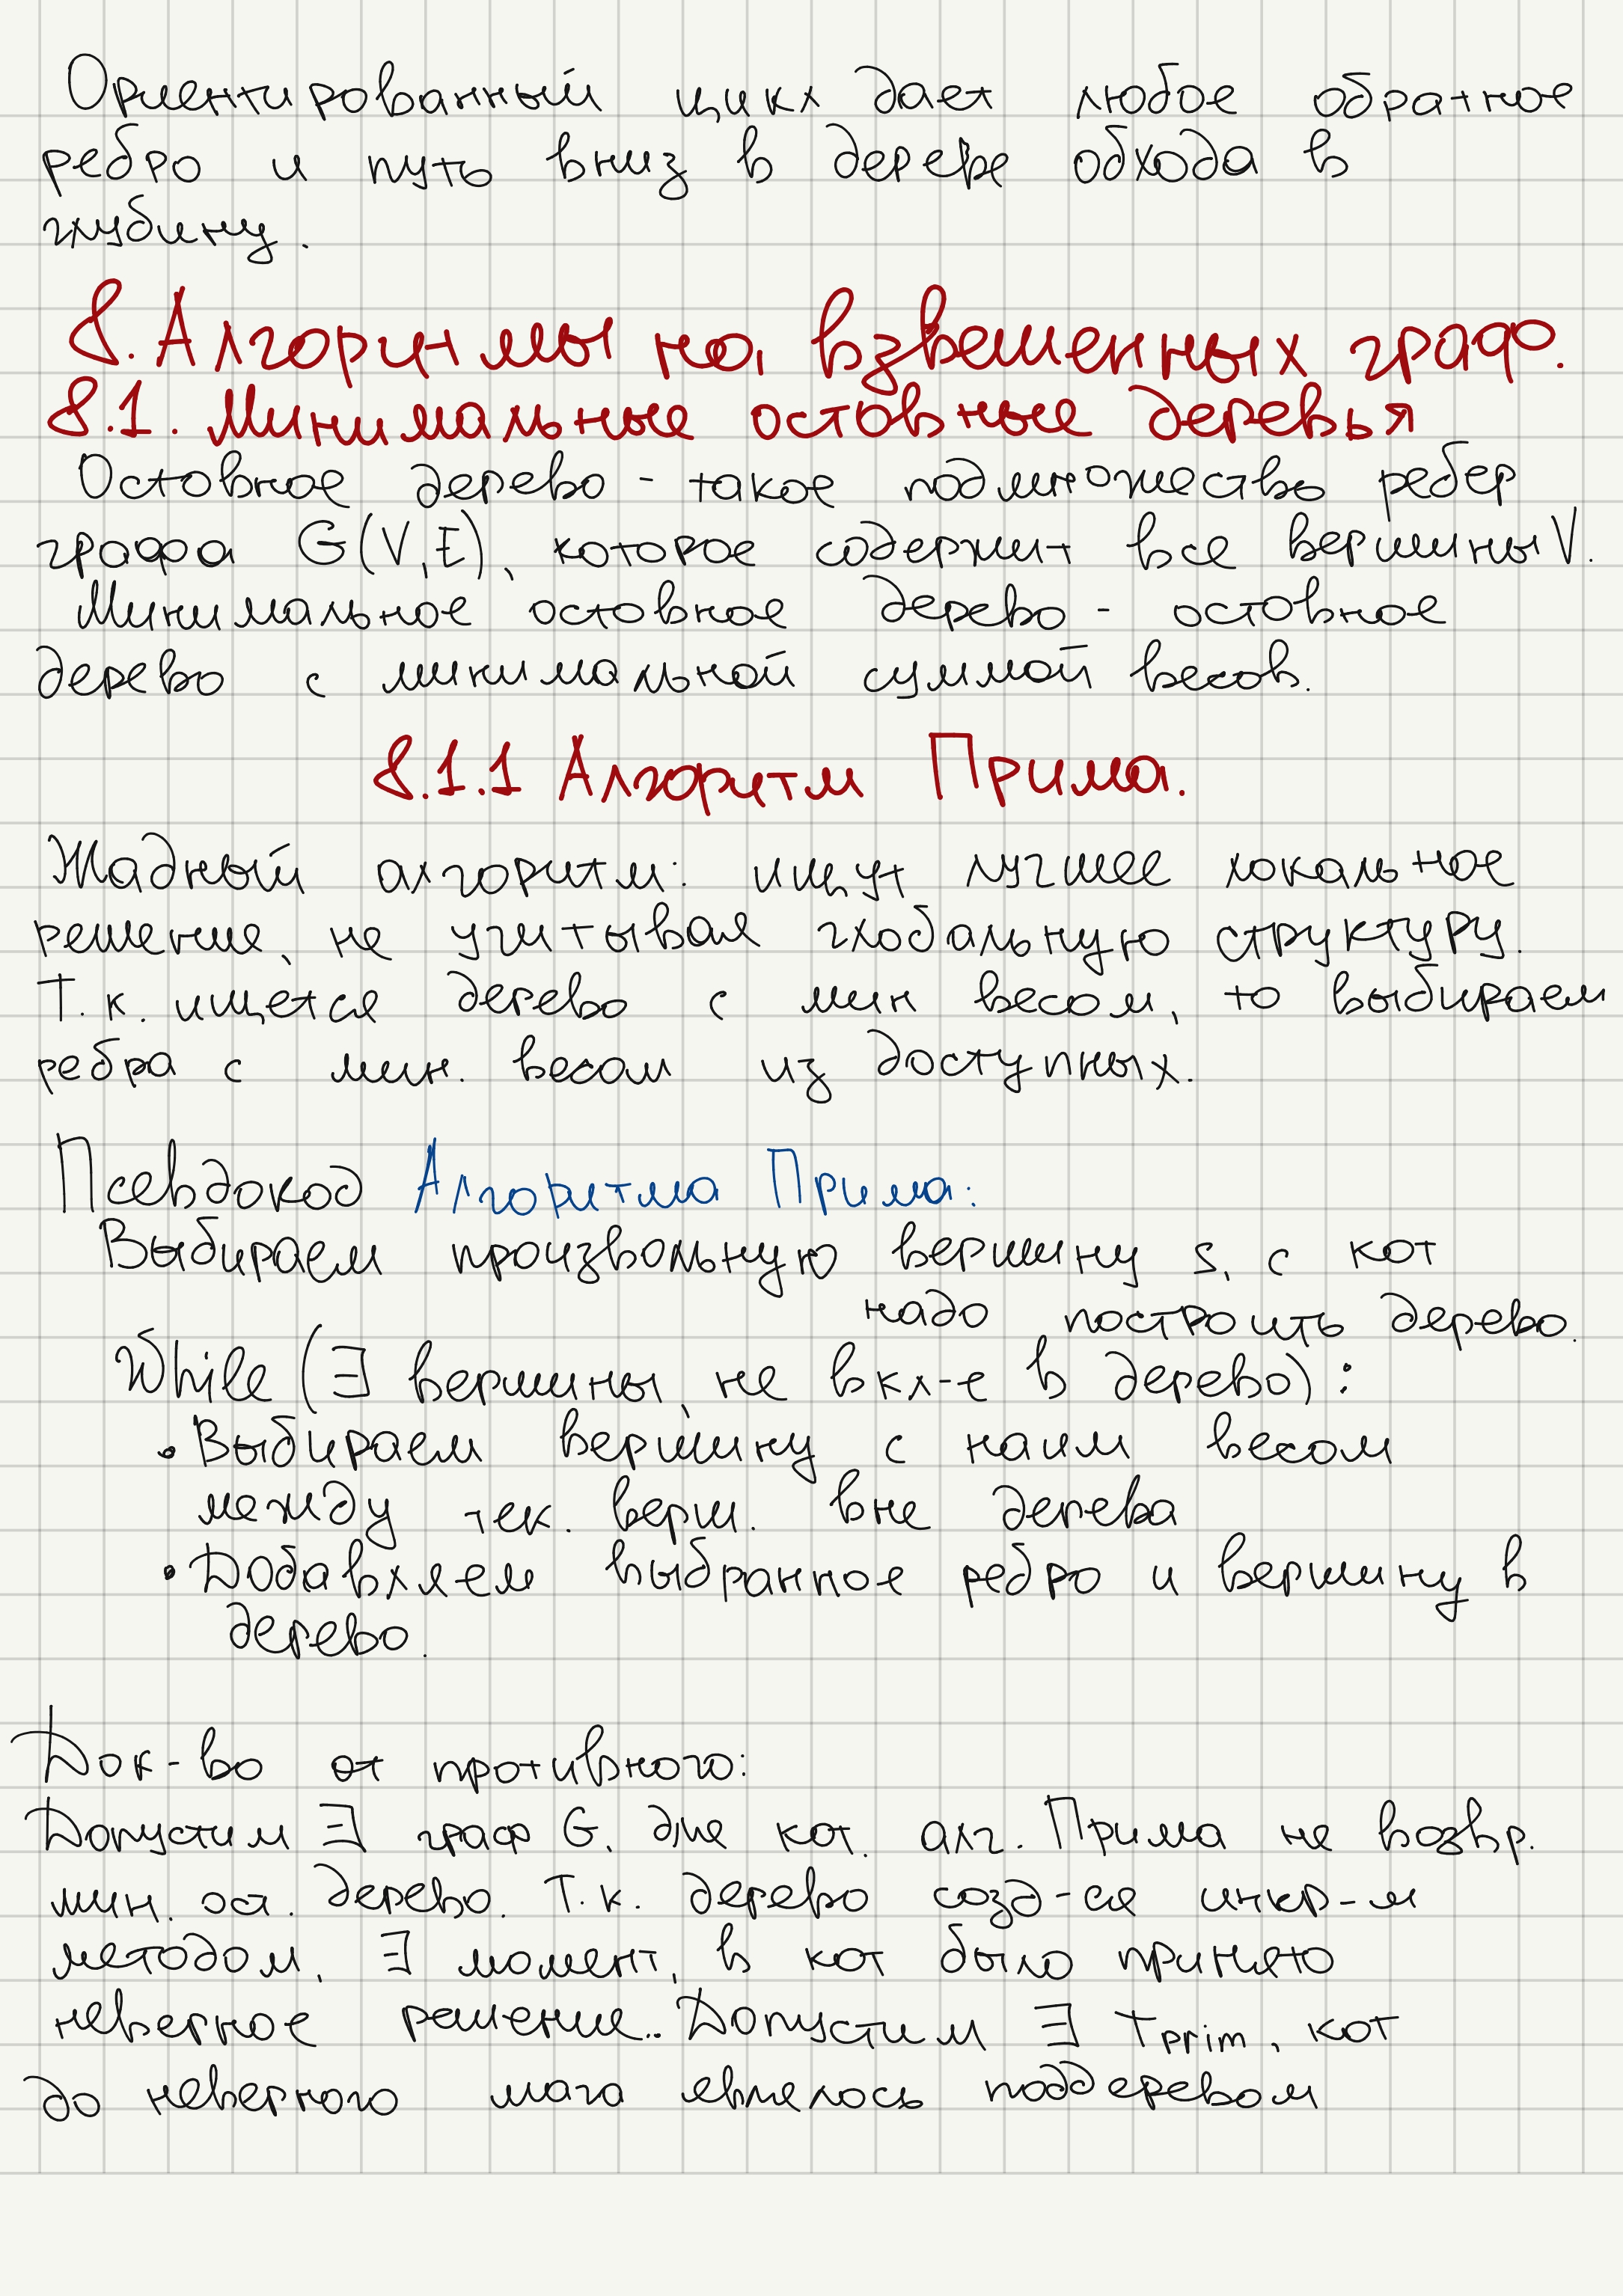 Ориентированный цикл дает любое обратное
ребро и путь вниз в дереве обхода в
глубину.
8. Алгоритмы на взвешенных граф.
8.1. Минимальные остовные деревья
Остовное дерево - такое подмножество ребер
графа G(V,E), которое содержит все вершины V.
Минимальное остовное дерево - остовное
дерево с минимальной суммой весов.
8.1.1 Алгоритм Прима.
Жадный алгоритм: ищут лучшее локальное
решение, не учитывая глобальную структуру.
Т.к. ищется дерево с мин весом, то выбираем
ребра с мин. весом из доступных.
Псевдокод Алгоритма Прима:
Выбираем произвольную вершину s, с кот
надо построить дерево.
While (∃ вершины, не вкл-е в дерево):
• Выбираем вершину с наим весом
между тек. верш. вне дерева
• Добавляем выбранное ребро и вершину в
дерево.
Док-во от противного:
Допустим ∃ граф G, для кот. алг. Прима не возвр.
мин. ост. дерево. Т.к. дерево созд-ся инкр-м
методом, ∃ момент, в кот было принято
неверное решение.. Допустим ∃ Tprim, кот
до неверного шага являлось поддеревом